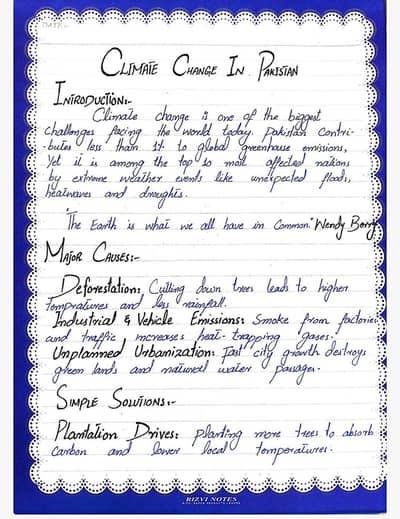 DATE:
CLIMATE CHANGE IN PAKISTAN
INTRODUCTION:-
Climate change is one of the biggest
challenges facing the world today. Pakistan contri-
-butes less than 1%. to global greenhouse emissions,
Yet it is among the top 10 most affected nations
by extreme weather events like unexpected floods,
heatwaves and droughts.
"The Earth is what we all have in common." Wendy Berry
MAJOR CAUSES:-
Deforestation: Cutting down trees leads to higher
Tempratures and less rainfall.
Industrial & Vehicle Emissions: Smoke from factories
and traffic increases heat-trapping gases.
Unplanned Urbanization: Fast city growth destroys
green lands and natural water passages.
SIMPLE SOLUTIONS:-
Plantation Drives: planting more trees to absorb
Carbon and lower local temperatures.
RIZVI NOTES